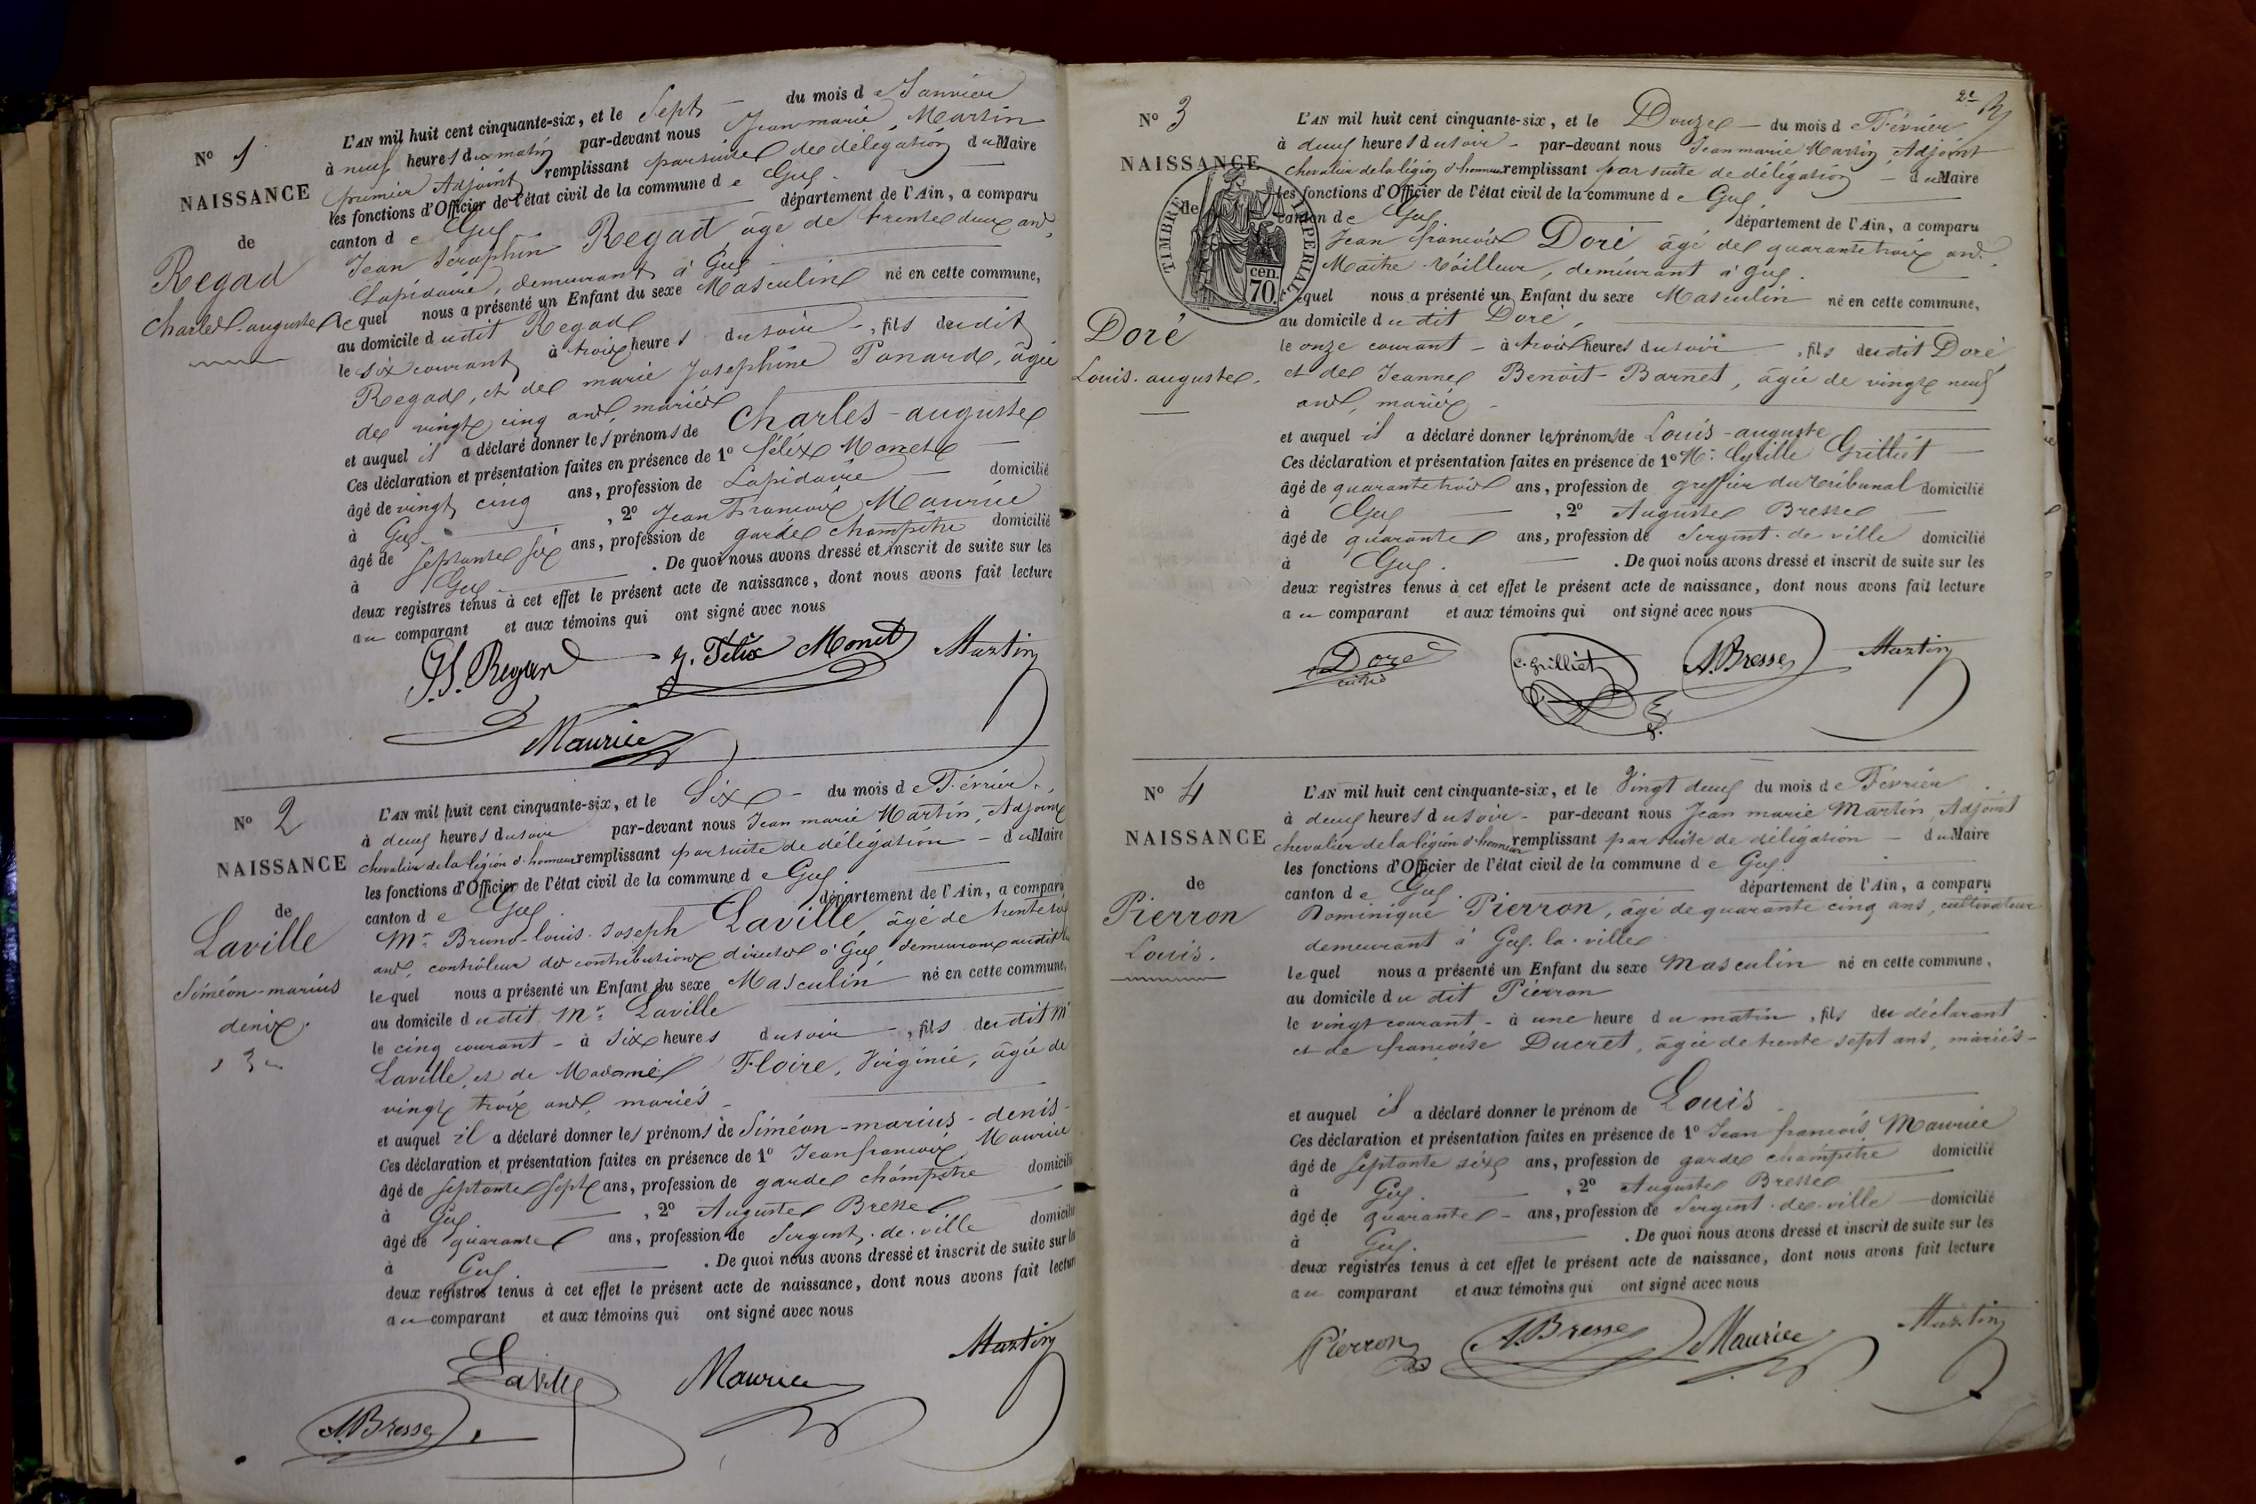 N° 1
NAISSANCE
de
Regad
Charles-auguste
L'AN mil huit cent cinquante-six, et le Sept du mois de Janvier
à neuf heures du matin par-devant nous Jean marie Martin
premier Adjoint remplissant par suite de délégation du Maire
les fonctions d'Officier de l'état civil de la commune de Gex
canton de Gex département de l'Ain, a comparu
Jean Seraphin Regad âgé de trente deux ans,
Lapidaire, demeurant à Gex
lequel nous a présenté un Enfant du sexe Masculin né en cette commune,
au domicile dudit Regad
le six courant à trois heures du soir, fils dudit
Regad, et de marie Josephine Panard, âgée
de vingt cinq ans, mariés
et auquel il a déclaré donner les prénoms de Charles-auguste
Ces déclaration et présentation faites en présence de 1° félix Monet
âgé de vingt cinq ans, profession de Lapidaire domicilié
à Gex, 2° Jean François Maurice
âgé de septante six ans, profession de garde champêtre domicilié
à Gex. De quoi nous avons dressé et inscrit de suite sur les
deux registres tenus à cet effet le présent acte de naissance, dont nous avons fait lecture
au comparant et aux témoins qui ont signé avec nous
J.S. Regad J. Félix Monet Martin
Maurice
N° 2
NAISSANCE
de
Laville
Siméon-marius
denis.
L'AN mil huit cent cinquante-six, et le Six du mois de Février,
à deux heures du soir par-devant nous Jean marie Martin, Adjoint
chevalier de la légion d'honneur remplissant par suite de délégation du Maire
les fonctions d'Officier de l'état civil de la commune de Gex
canton de Gex département de l'Ain, a comparu
Mr Bruno-louis-Joseph Laville, âgé de trente
ans, contrôleur des contributions directes à Gex, demeurant audit
lequel nous a présenté un Enfant du sexe Masculin né en cette commune,
au domicile dudit Mr Laville
le cinq courant - à six heures du soir -, fils dudit Mr
Laville, et de Madame Floire, Virginie, âgée de
vingt trois ans, mariés -
et auquel il a déclaré donner les prénoms de Siméon-marius-denis-
Ces déclaration et présentation faites en présence de 1° Jean françois Maurice
âgé de septante sept ans, profession de garde champêtre domicilié
à Gex, 2° Auguste Bresse
âgé de quarante ans, profession de Sergent de ville domicilié
à Gex. De quoi nous avons dressé et inscrit de suite sur les
deux registres tenus à cet effet le présent acte de naissance, dont nous avons fait lecture
au comparant et aux témoins qui ont signé avec nous
Laville Maurice Martin
A. Bresse
2e
N° 3
NAISSANCE
de
TIMBRE IMPERIAL
70 cen.
Doré
Louis-auguste.
L'AN mil huit cent cinquante-six, et le Douze - du mois de Février
à deux heures du soir - par-devant nous Jean marie Martin, Adjoint
chevalier de la légion d'honneur remplissant par suite de délégation - du Maire
les fonctions d'Officier de l'état civil de la commune de Gex,
canton de Gex. département de l'Ain, a comparu
Jean françois Doré âgé de quarante trois ans.
Maitre tailleur, demeurant à Gex.
lequel nous a présenté un Enfant du sexe Masculin né en cette commune,
au domicile du dit Doré,
le onze courant - à trois heures du soir, fils dudit Doré,
et de Jeanne Benoit-Barnet, âgée de vingt neuf
ans, mariés -
et auquel il a déclaré donner les prénoms de Louis-auguste
Ces déclaration et présentation faites en présence de 1° Mr Cyrille Grilliet
âgé de quarante trois ans, profession de greffier du tribunal domicilié
à Gex, 2° Auguste Bresse
âgé de quarante ans, profession de Sergent de ville domicilié
à Gex. De quoi nous avons dressé et inscrit de suite sur les
deux registres tenus à cet effet le présent acte de naissance, dont nous avons fait lecture
au comparant et aux témoins qui ont signé avec nous
Doré C. Grilliet A. Bresse Martin
N° 4
NAISSANCE
de
Pierron
Louis.
L'AN mil huit cent cinquante-six, et le Vingt deux du mois de Février
à deux heures du soir - par-devant nous Jean marie Martin, Adjoint
chevalier de la légion d'honneur remplissant par suite de délégation - du Maire
les fonctions d'Officier de l'état civil de la commune de Gex
canton de Gex. département de l'Ain, a comparu
Dominique Pierron, âgé de quarante cinq ans, cultivateur
demeurant à Gex-la-ville
lequel nous a présenté un Enfant du sexe Masculin né en cette commune,
au domicile du dit Pierron
le vingt courant - à une heure du matin, fils du déclarant
et de françoise Ducret, âgée de trente sept ans, mariés -
et auquel il a déclaré donner le prénom de Louis
Ces déclaration et présentation faites en présence de 1° Jean françois Maurice
âgé de septante six ans, profession de garde champêtre domicilié
à Gex. , 2° Auguste Bresse
âgé de quarante - ans, profession de Sergent de ville domicilié
à Gex. De quoi nous avons dressé et inscrit de suite sur les
deux registres tenus à cet effet le présent acte de naissance, dont nous avons fait lecture
au comparant et aux témoins qui ont signé avec nous
Pierron A. Bresse Maurice Martin